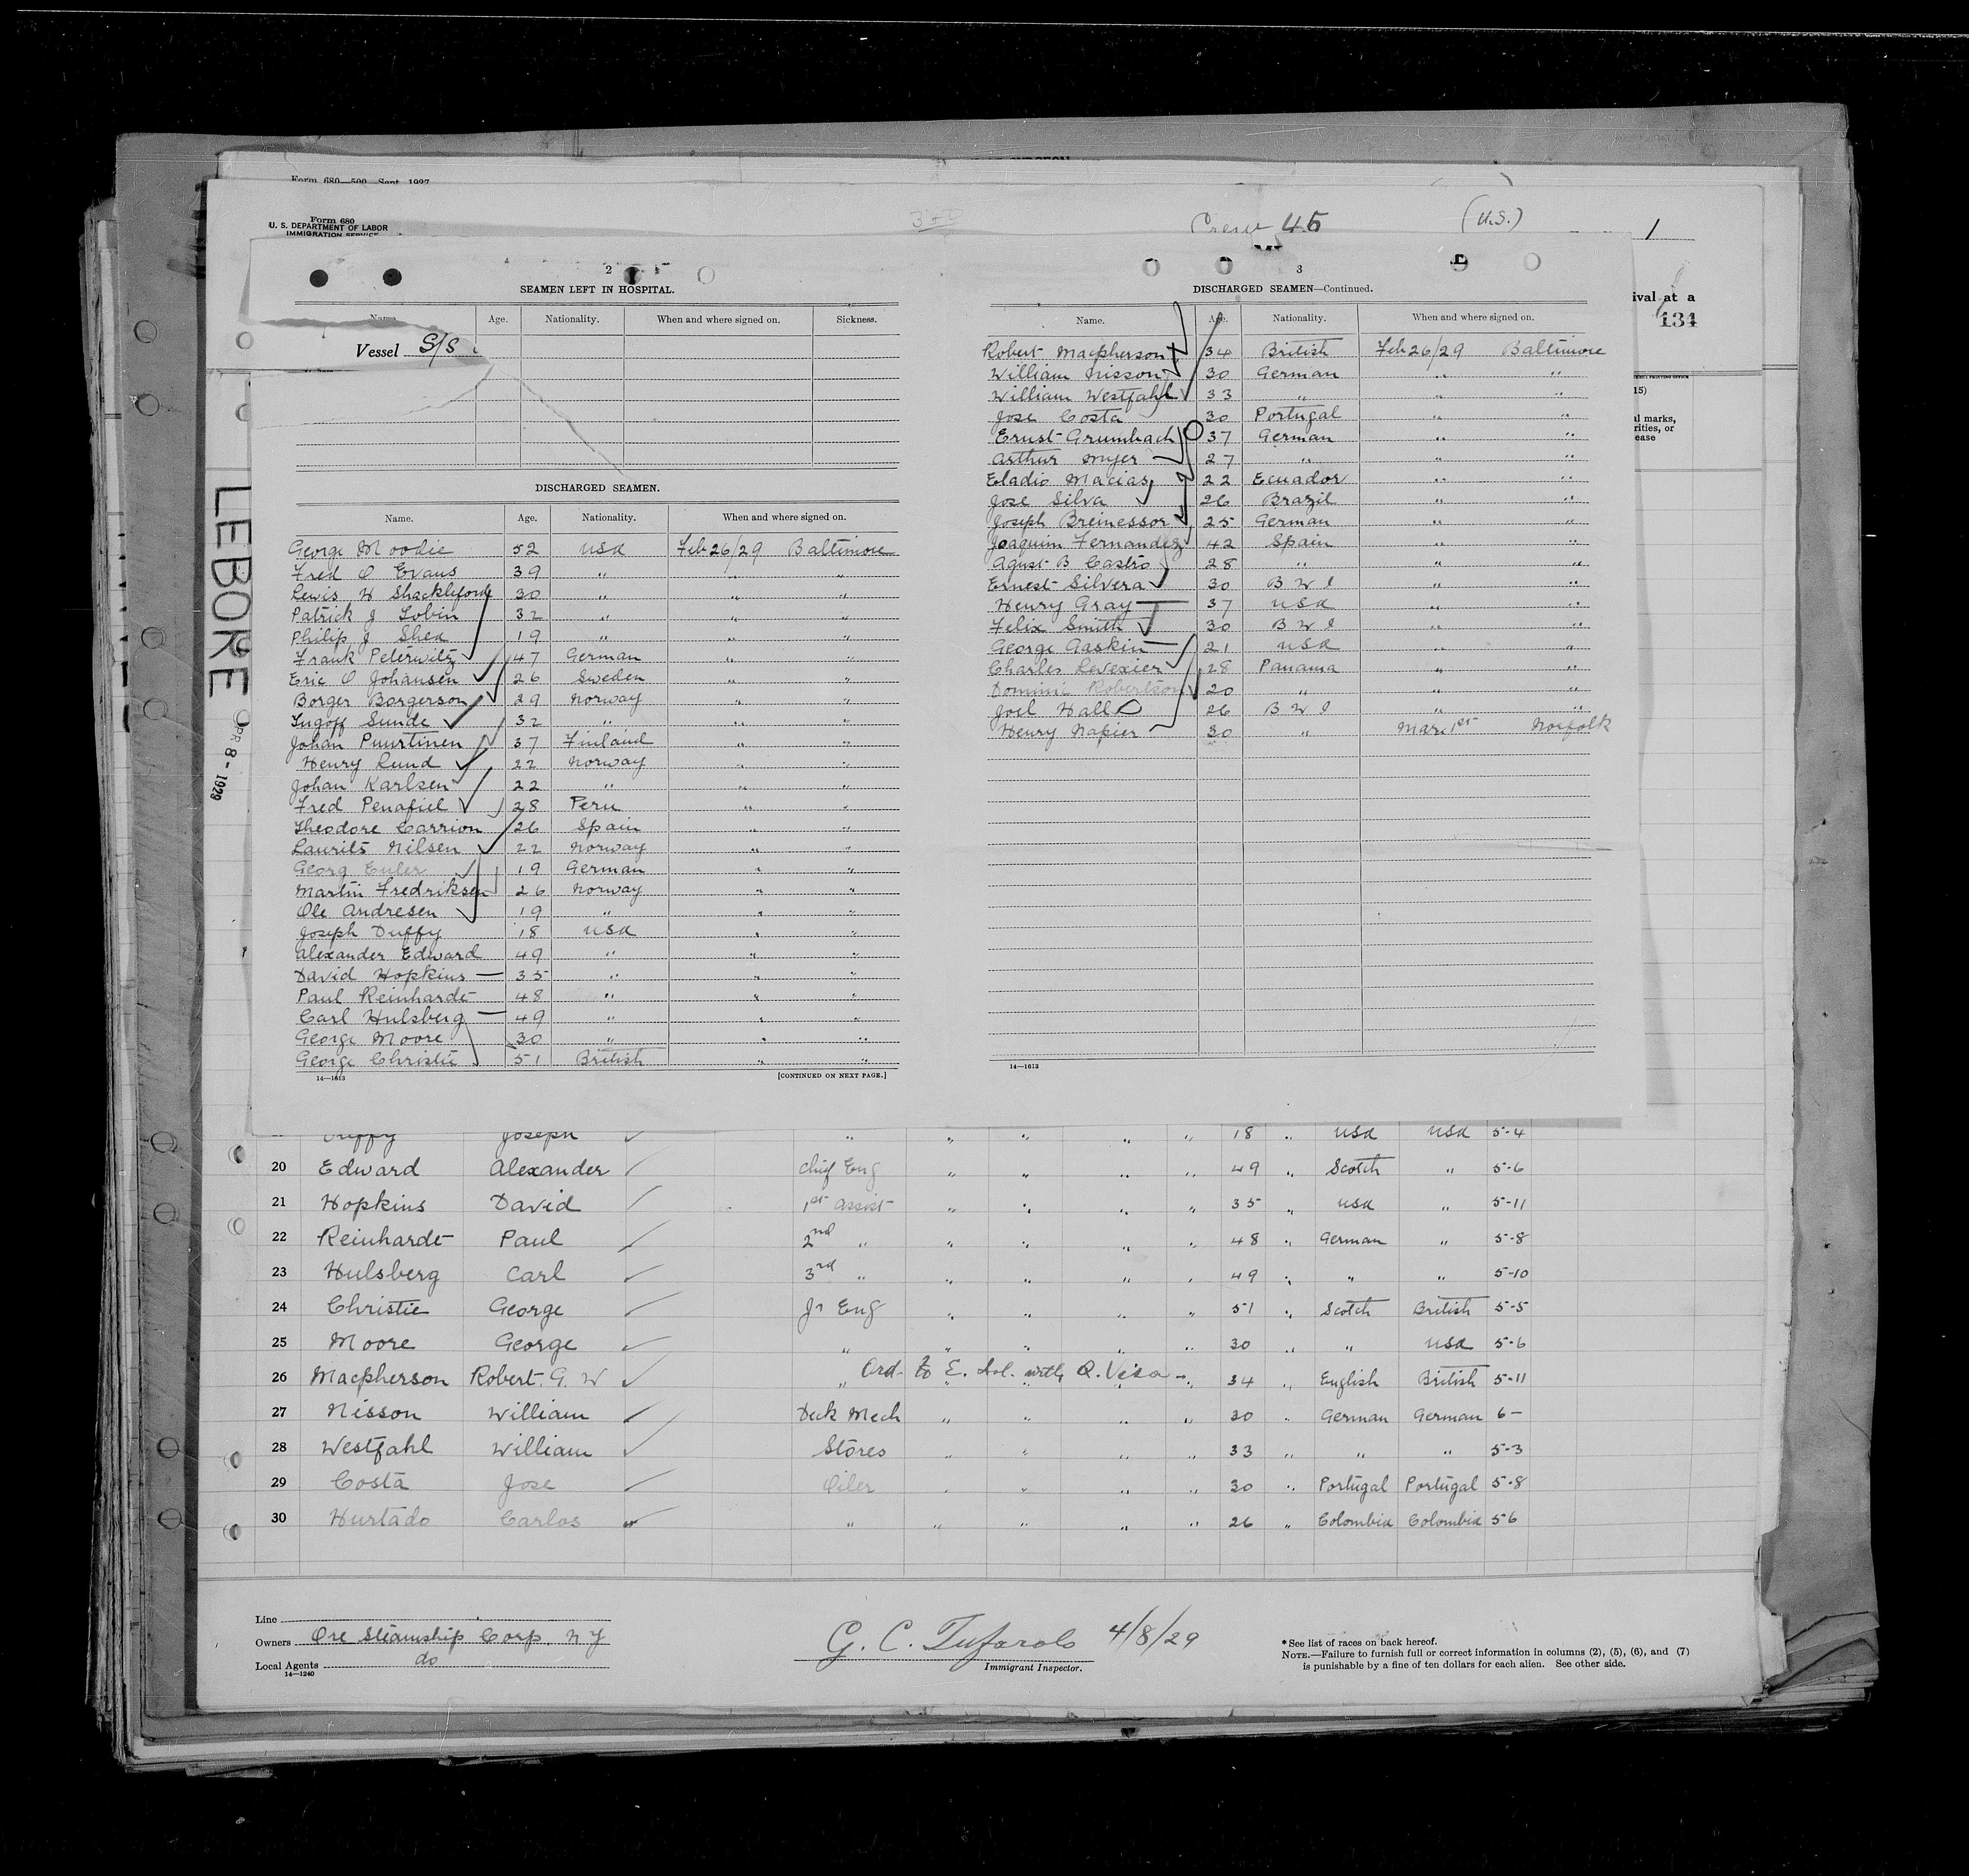 Form 680—500 Sept. 1927
Form 680
U. S. DEPARTMENT OF LABOR
IMMIGRATION SERVICE
Crew 45 (U.S.) 1
ival at a
134
15)
al marks,
rities, or
ease
LEBORE
APR 8 - 1929
Vessel S/S
2
SEAMEN LEFT IN HOSPITAL.
Name. Age. Nationality. When and where signed on. Sickness.
DISCHARGED SEAMEN.
Name. Age. Nationality. When and where signed on.
George Moodie 52 USA Feb 26/29 Baltimore
Fred O Evans 39 " " "
Lewis H Shackleforde 30 " " "
Patrick J Tobin 32 " " "
Philip J Shea 19 " " "
Frank Peterwitz 47 German " "
Eric O Johansen 26 Sweden " "
Borger Borgerson 29 Norway " "
Ingoff Sunde 32 " " "
Johan Puurtinen 37 Finland " "
Henry Lund 22 Norway " "
Johan Karlsen 22 " " "
Fred Penafiel 28 Peru " "
Theodore Carrion 26 Spain " "
Laurits Nilsen 22 Norway " "
Georg Euler 19 German " "
Martin Fredriksen 26 Norway " "
Ole Andresen 19 " " "
Joseph Duffy 18 USA " "
Alexander Edward 49 " " "
David Hopkins 35 " " "
Paul Reinhardt 48 " " "
Carl Hulsberg 49 " " "
George Moore 30 " " "
George Christie 51 British " "
14—1613 [CONTINUED ON NEXT PAGE.]
3
DISCHARGED SEAMEN—Continued.
Name. Age. Nationality. When and where signed on.
Robert Macpherson 34 British Feb 26/29 Baltimore
William Nisson 30 German " "
William Westfahl 33 " " "
Jose Costa 30 Portugal " "
Ernst Grumbach 37 German " "
Arthur Myer 27 " " "
Eladio Macias 22 Ecuador " "
Jose Silva 26 Brazil " "
Joseph Breinessor 25 German " "
Joaquim Fernandez 42 Spain " "
Agust B Castro 28 " " "
Ernest Silvera 30 B W I " "
Henry Gray 37 USA " "
Felix Smith 30 B W I " "
George Gaskin 21 USA " "
Charles Levexier 28 Panama " "
Dominic Robertson 20 " " "
Joel Hall 26 B W I " "
Henry Napier 30 " Mar 1st Norfolk
14—1613
Duffy Joseph " " " " " 18 " USA USA 5-4
20 Edward Alexander Chief Eng " " " " 49 " Scotch " 5-6
21 Hopkins David 1st Assist " " " " 35 " USA " 5-11
22 Reinhardt Paul 2nd " " " " " 48 " German " 5-8
23 Hulsberg Carl 3rd " " " " " 49 " " " 5-10
24 Christie George Jr Eng " " " " 51 " Scotch British 5-5
25 Moore George " " " " " 30 " " USA 5-6
26 Macpherson Robert G. W " Ord to E. with Q. Visa " 34 " English British 5-11
27 Nisson William Deck Mech " " " " 30 " German German 6-
28 Westfahl William Stores " " " " 33 " " " 5-3
29 Costa Jose Oiler " " " " 30 " Portugal Portugal 5-8
30 Hurtado Carlos " " " " " 26 " Colombia Colombia 5 6
Line
Owners Ore Steamship Corp. N Y
Local Agents do
14—1240
G. C. Tufarolo 4/8/29
Immigrant Inspector.
* See list of races on back hereof.
NOTE.—Failure to furnish full or correct information in columns (2), (5), (6), and (7)
is punishable by a fine of ten dollars for each alien. See other side.